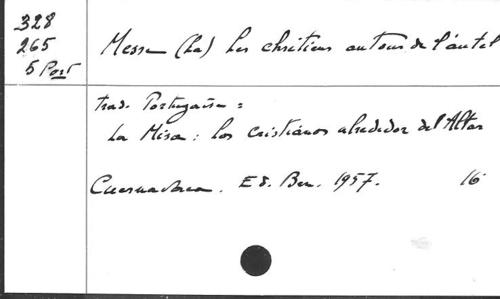 328
265
5 Port
Messe (La) Les chrétiens autour de l'autel
trad. Portugaise :
La Misa : los cristianos alrededor del Altar
Cuernavaca. Ed. Ben. 1957. 16